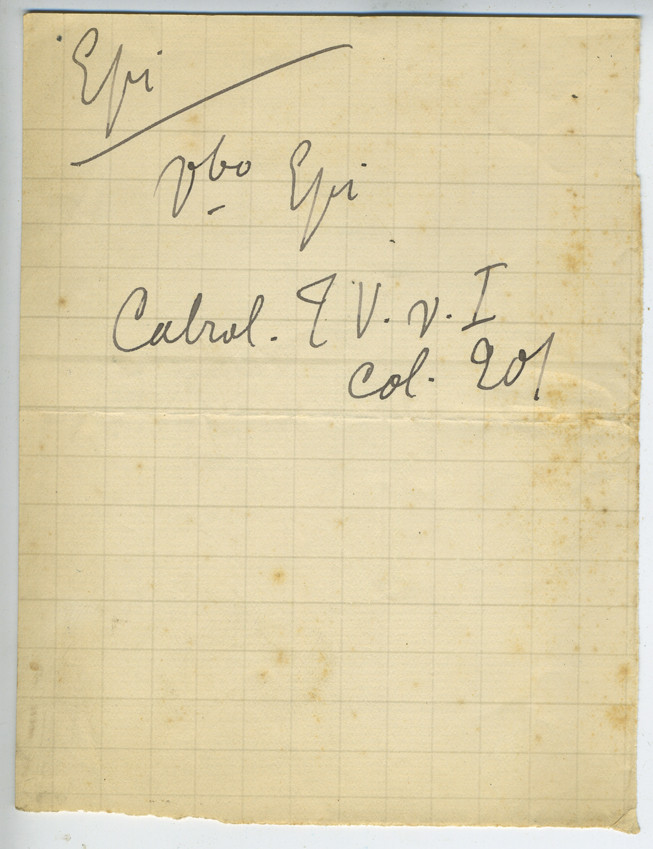 Epi
vbo Epi
Cabrol. T V. v. I
col. 201